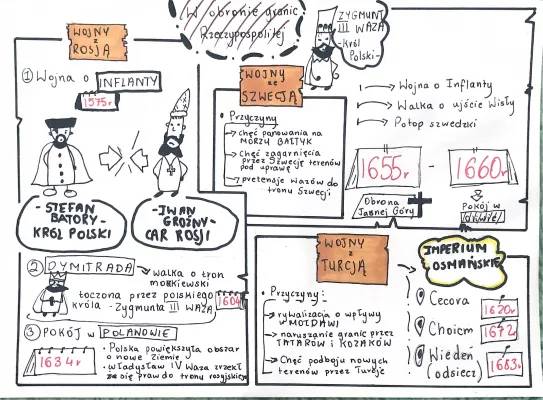 W obronie granic
Rzeczypospolitej
WOJNY
Z
ROSJĄ
① Wojna o INFLANTY
1575r
- STEFAN
BATORY -
KRÓL POLSKI
- IWAN
GROŹNY -
CAR ROSJI
② DYMITRIADA
walka o tron
moskiewski
toczona przez polskiego
króla - Zygmunta III WAZA
1604
③ POKÓJ W POLANOWIE
1634r
• Polska powiększyła obszar
o nowe ziemie
• Władysław IV Waza zrzekł
się praw do tronu rosyjskiego
ZYGMUNT
III WAZA
- król
Polski -
WOJNY
ze
SZWECJĄ
• Przyczyny
chęć panowania na
MORZU BAŁTYK
chęć zagarnięcia
przez Szwecję terenów
pod uprawę
pretensje Wazów do
tronu Szwecji
Wojna o Inflanty
Walka o ujście Wisły
Potop szwedzki
1655r - 1660r
Obrona
Jasnej Góry
Pokój w
WOJNY
Z
TURCJĄ
• Przyczyny:
rywalizacja o wpływy
w MOŁDAWI
naruszanie granic przez
TATARÓW i KOZAKÓW
Chęć podboju nowych
terenów przez Turcję
IMPERIUM
OSMAŃSKIE
Cecora 1620r
Chocim 1672
Wiedeń 1683r
(odsiecz)